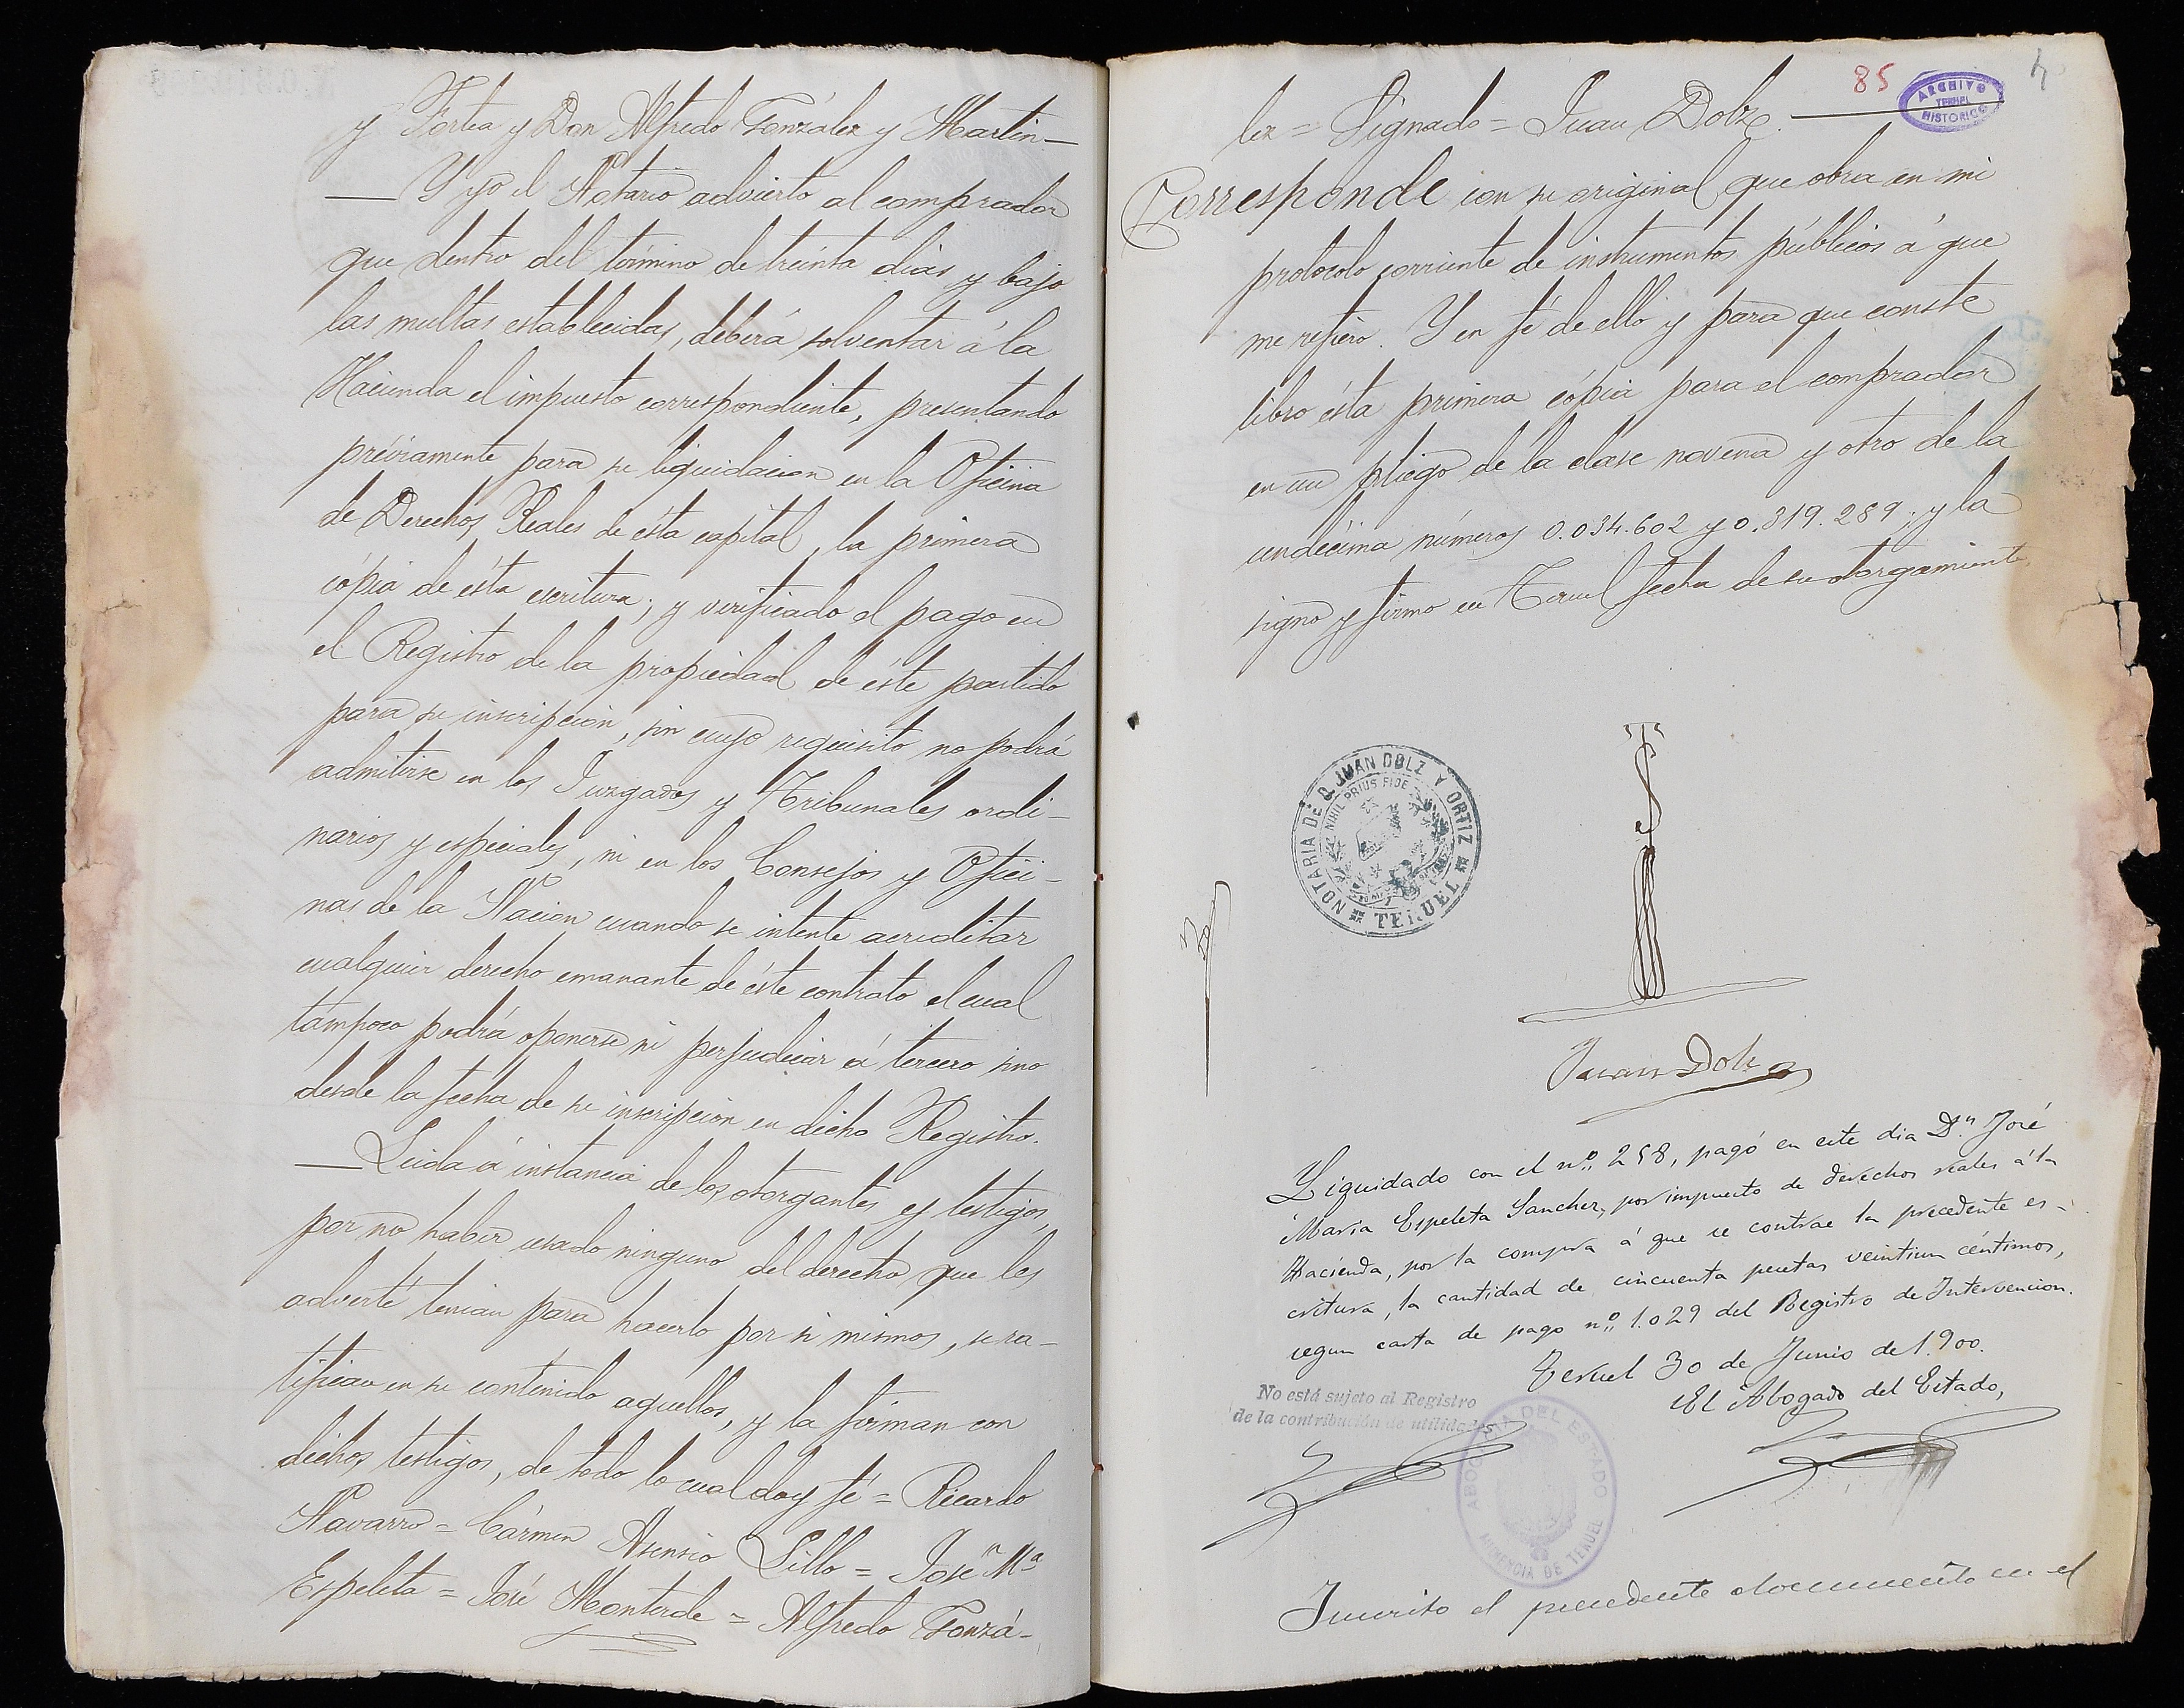 y Fortea y Don Alfredo Gonzálex y Martin—
— Y yo el Notario advierto al comprador
que dentro del término de treinta dias y bajo
las multas establecidas, deberá solventar á la
Hacienda el impuesto correspondiente, presentando
préviamente para su liquidacion en la Oficina
de Derechos Reales de ésta capital, la primera
cópia de ésta escritura; y verificado el pago en
el Registro de la propiedad de éste partido
para su inscripcion, sin cuyo requisito no podrá
admitirse en los Juzgados y Tribunales ordi-
narios y especiales, ni en los Consejos y Ofici-
nas de la Nacion cuando se intente acreditar
cualquier derecho emanante de éste contrato el cual
tampoco podrá oponerse ni perjudicar á tercero sino
desde la fecha de su inscripcion en dicho Registro.
— Leida á instancia de los otorgantes y testigos,
por no haber usado ninguno del derecho que les
advertí tenian para hacerlo por si mismos, se ra-
tifican en su contenido aquellos, y la firman con
dichos testigos, de todo lo cual doy fé = Ricardo
Navarro = Cármen Asensio Lillo = José Mª
Espeleta = José Monterde = Alfredo Gonzá-
85
4
ARCHIVO
TERUEL
HISTORICO
lez = Signado = Juan Dolz.—
Corresponde con su original que obra en mi
protocolo corriente de instrumentos públicos á que
me refiero. Y en fé de ello y para que conste
libro ésta primera cópia para el comprador
en un pliego de la clase novena y otro de la
undécima números 0.034.602 y 0.319.289; y la
signo y firmo en Teruel fecha de su otorgamiento
NOTARIA DE D. JUAN DOLZ Y ORTIZ
NIHIL PRIUS FIDE
TERUEL
Juan Dolz
Liquidado con el nº 258, pagó en este dia Dn José
Maria Espeleta Sanchez, por impuesto de derechos reales á la
Hacienda, por la compra á que se contrae la precedente es-
critura, la cantidad de cincuenta pesetas veintiun céntimos,
segun carta de pago nº 1.029 del Registro de Intervencion.
Teruel 30 de Junio de 1.900.
El Abogado del Estado,
No está sujeto al Registro
de la contribución de utilidades
ABOGACIA DEL ESTADO
DE TERUEL
Inscrito el precedente documento en el